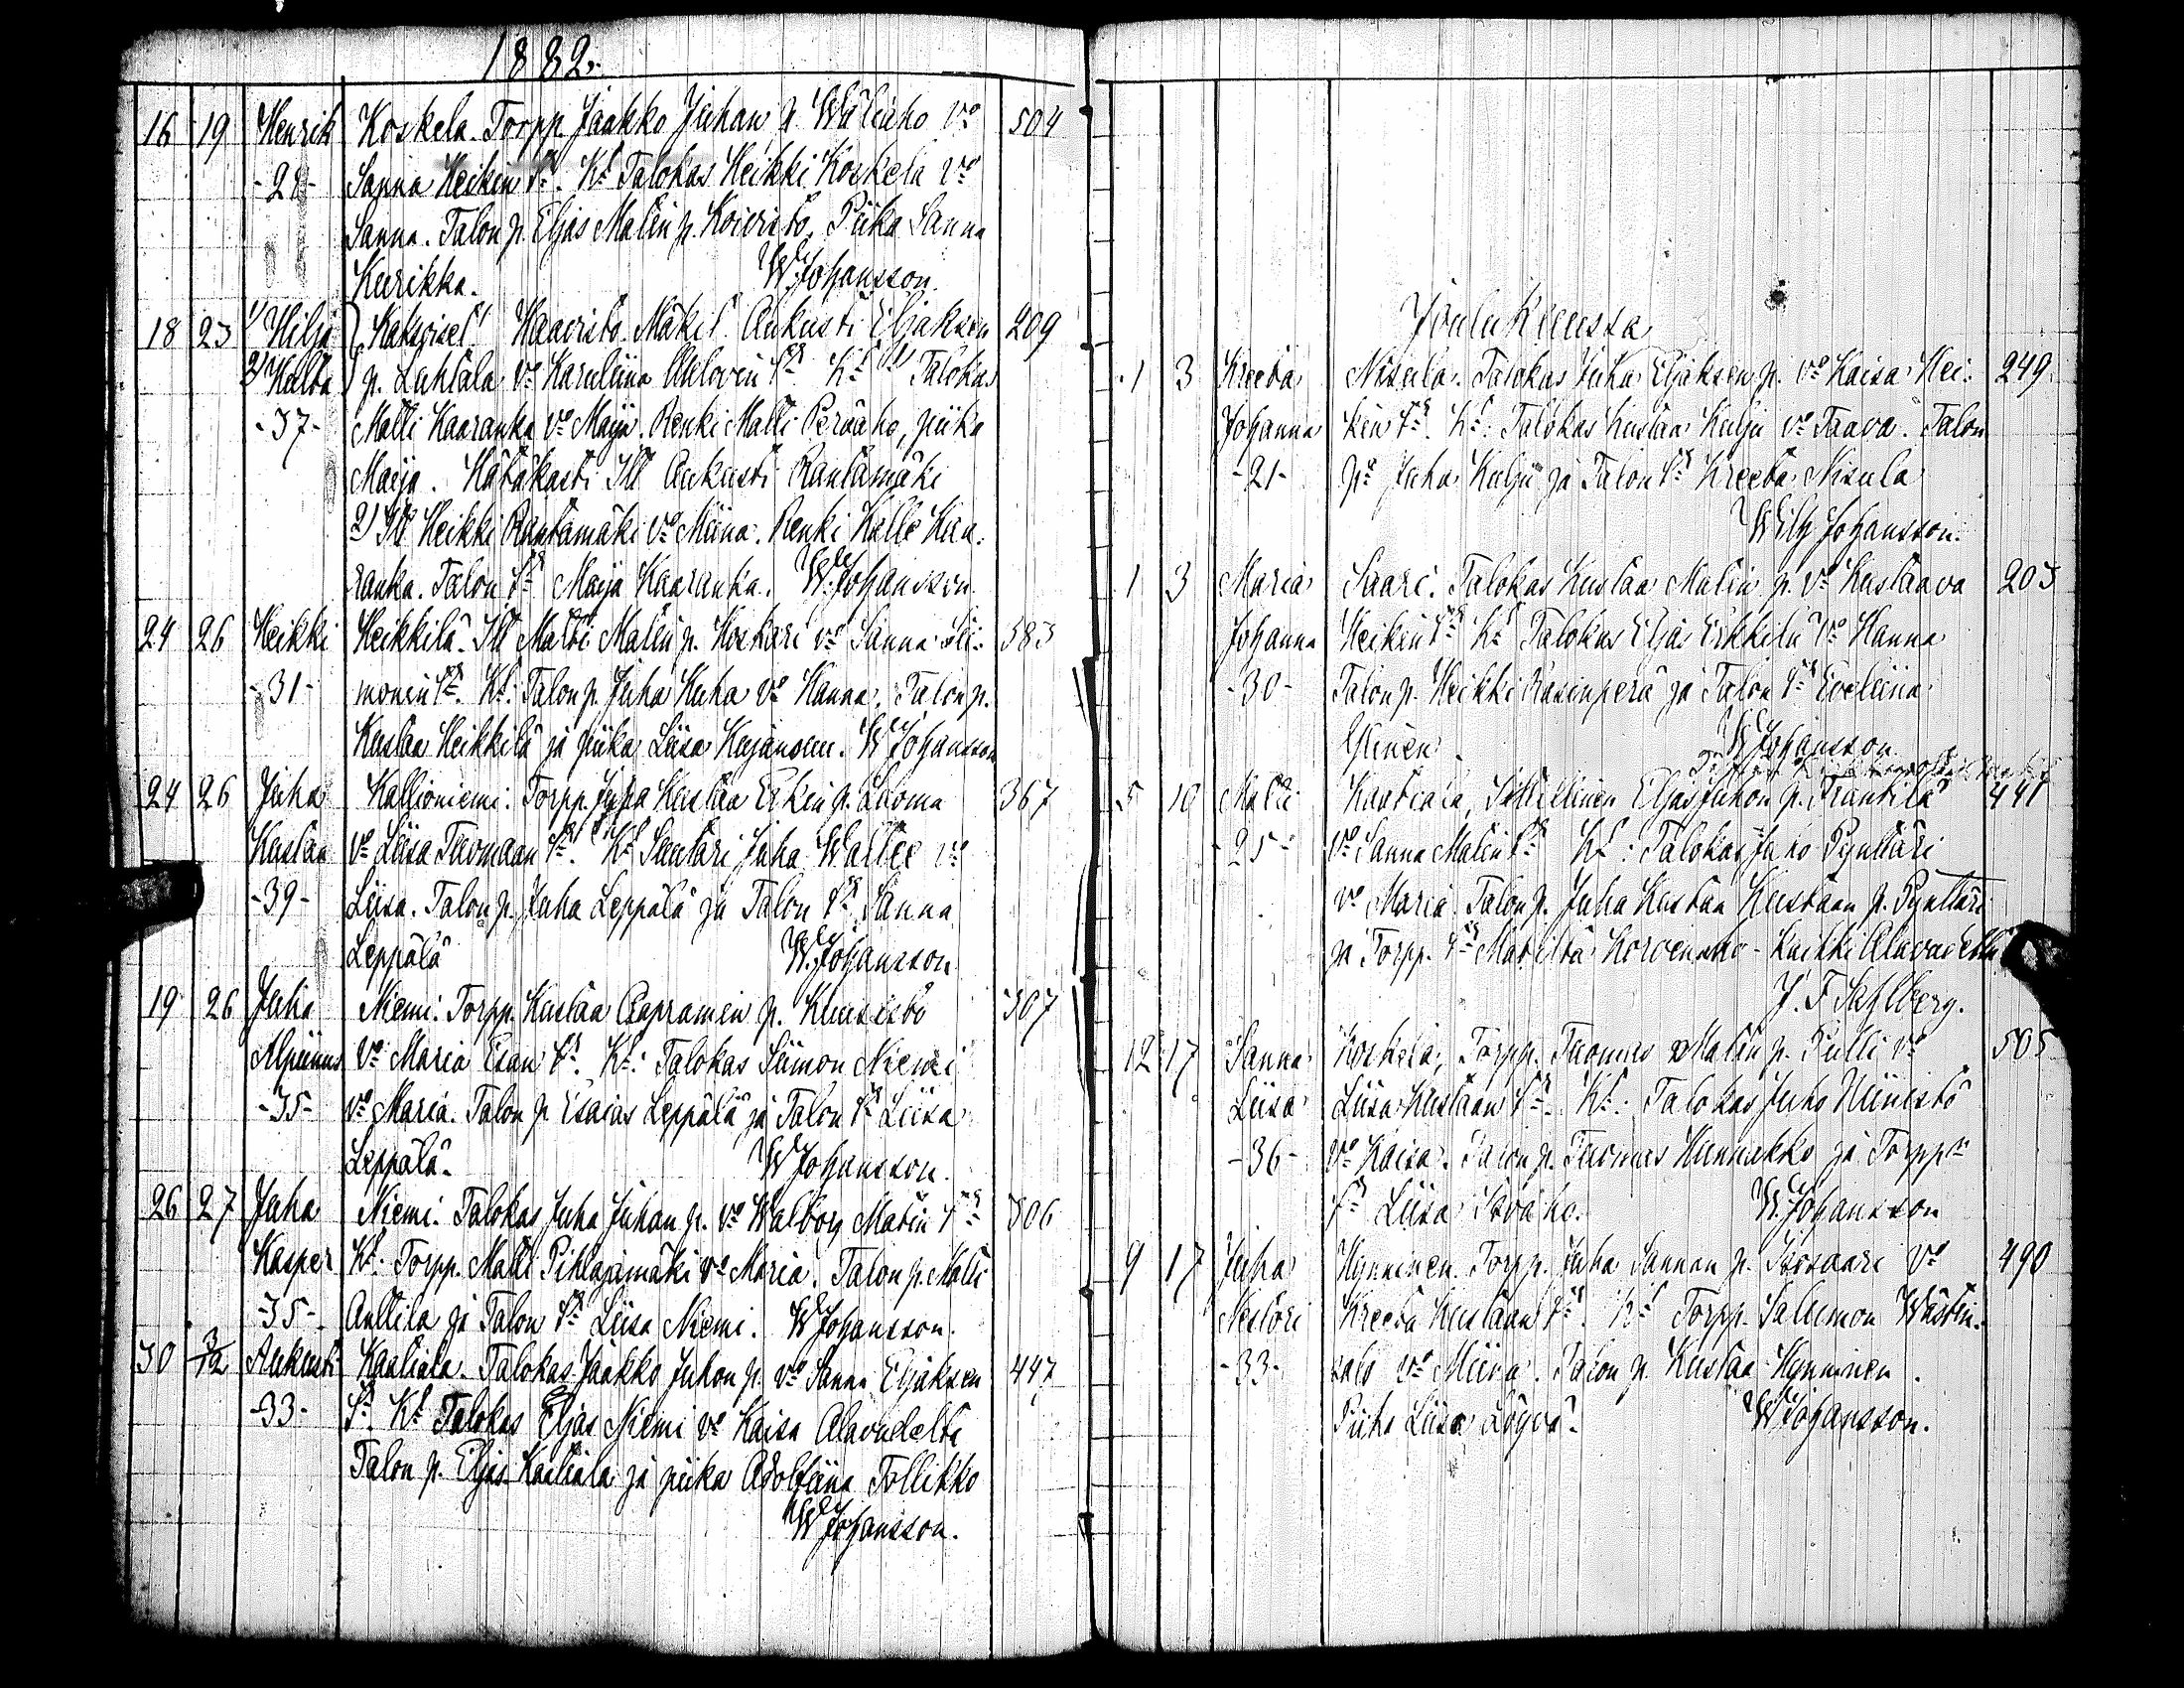 1882.
16 19 Henrik Koskela. Torpp. Jaakko Juhan p. Wäliaho vo 504
-28- Sanna Heikin tr. Kt Talokas Heikki Koskela vo
Sanna. Talon p. Eljas Matin p. Koivisto, Piika Sanna
Kurikka. W Johansson.
18 23 1/ Hilja Kaksoiset Haavisto. Mäkit. Aukusti Eljaksen 209
2/ Hulta p. Luhtala vo Karuliina tr. Kt 1/ Talokas
-37- Matti Kaaranka vo Maija. Renki Matti Peräaho, piika
Maija. Hätäkasti Itl Aukusti Rantamäki
2/ Itl Heikki Rantamäki vo Miina. Renki Kalle Kaa-
ranka. Talon tr Maija Kaaranka. W. Johansson.
24 26 Heikki Heikkilä. Itl Matti Matin p. Koskari vo Sanna Sii- 583
-31- monin tr. Kt: Talon p. Juha Kuha vo Hanna. Talon p.
Kustaa Heikkilä ja piika Liisa W Johansson
24 26 Juha Kallioniemi: Torpp. Juha Kustaa Erkin p. Luoma 367
Kustaa vo Liisa Tuomaan tr. Kt Suutari Juha Wallee vo
-39- Liisa. Talon p. Juha Leppälä ja Talon tr Sanna
Leppälä W. Johansson
19 26 Juha Niemi: Torpp. Kustaa Aapramin p. 507
Alpiinus vo Maria Esan tr. Kt: Talokas Siimon Niemi
-35- vo Maria. Talon p Esaias Leppälä ja Talon tr Liisa
Leppälä. W Johansson.
26 27 Juha Niemi: Talokas Juha Juhan p. vo Walborg Matin tr 506
Kasper Kt: Torpp. Matti Pihlajamäki vo Maria. Talon p. Matti
-35- Anttila ja Talon tr Liisa Niemi. W Johansson.
30 3/12 Aukusti Kaatiala. Talokas Jaakko Juhon p. vo Sanna Eljaksen 447
-33- tr. Kt Talokas Eljas Niemi vo Kaisa Alavudelta
Talon p. Eljas Kaatiala ja piika Adolfiina Tollikko
W Johansson.
Joulukuussa
1 3 Kreeta Nisula. Talokas Juha Eljaksen p. vo Kaisa Hei- 249
Johanna kin tr. Kt: Talokas Kustaa Kulju vo Taava. Talon
-21- po Juha Kulju ja Talon tr Kreeta Nisula
Wilh Johansson.
1 3 Maria Saari. Talokas Kustaa Matin p. vo Kustaava 205
Johanna Heikin tr Kt Talokas Eljas Erkkilä vo Hanna
-30- Talon p. Heikki Räsinperä ja Talon tr Eveliina
Ylinen. W Johansson
5 10 Matti Kaatiala, Itsellinen Eljas Juhon p. Franttila 441
25- vo Sanna Matin tr Kt: Talokas Juho Pynttäri
vo Maria. Talon p. Juha Kustaa Kustaan p. Pynttäri
ja Torpp. tr Matilta Korvenaho - Kaikki Alavudelta
J. F. Sahlberg.
12 17 Sanna Koskela, Torpp. Tuomas Matin p. Pulli vo 505
Liisa Liisa Kustaan tr. Kt: Talokas Juho Niinistö
-36- vo Kaisa. Talon p. Tuomas Hunnakko ja Torpp
tr Liisa W. Johansson
9 17 Juha Hynninen. Torpp. Juha Sannan p. Isosaari vo 490
Nestori Kreeta Kustaan tr. Kt Torpp. Salumon Wästin-
-33- salo vo Miina. Talon p. Kustaa Hynninen.
Piika Liisa Löyvä. W Johansson.